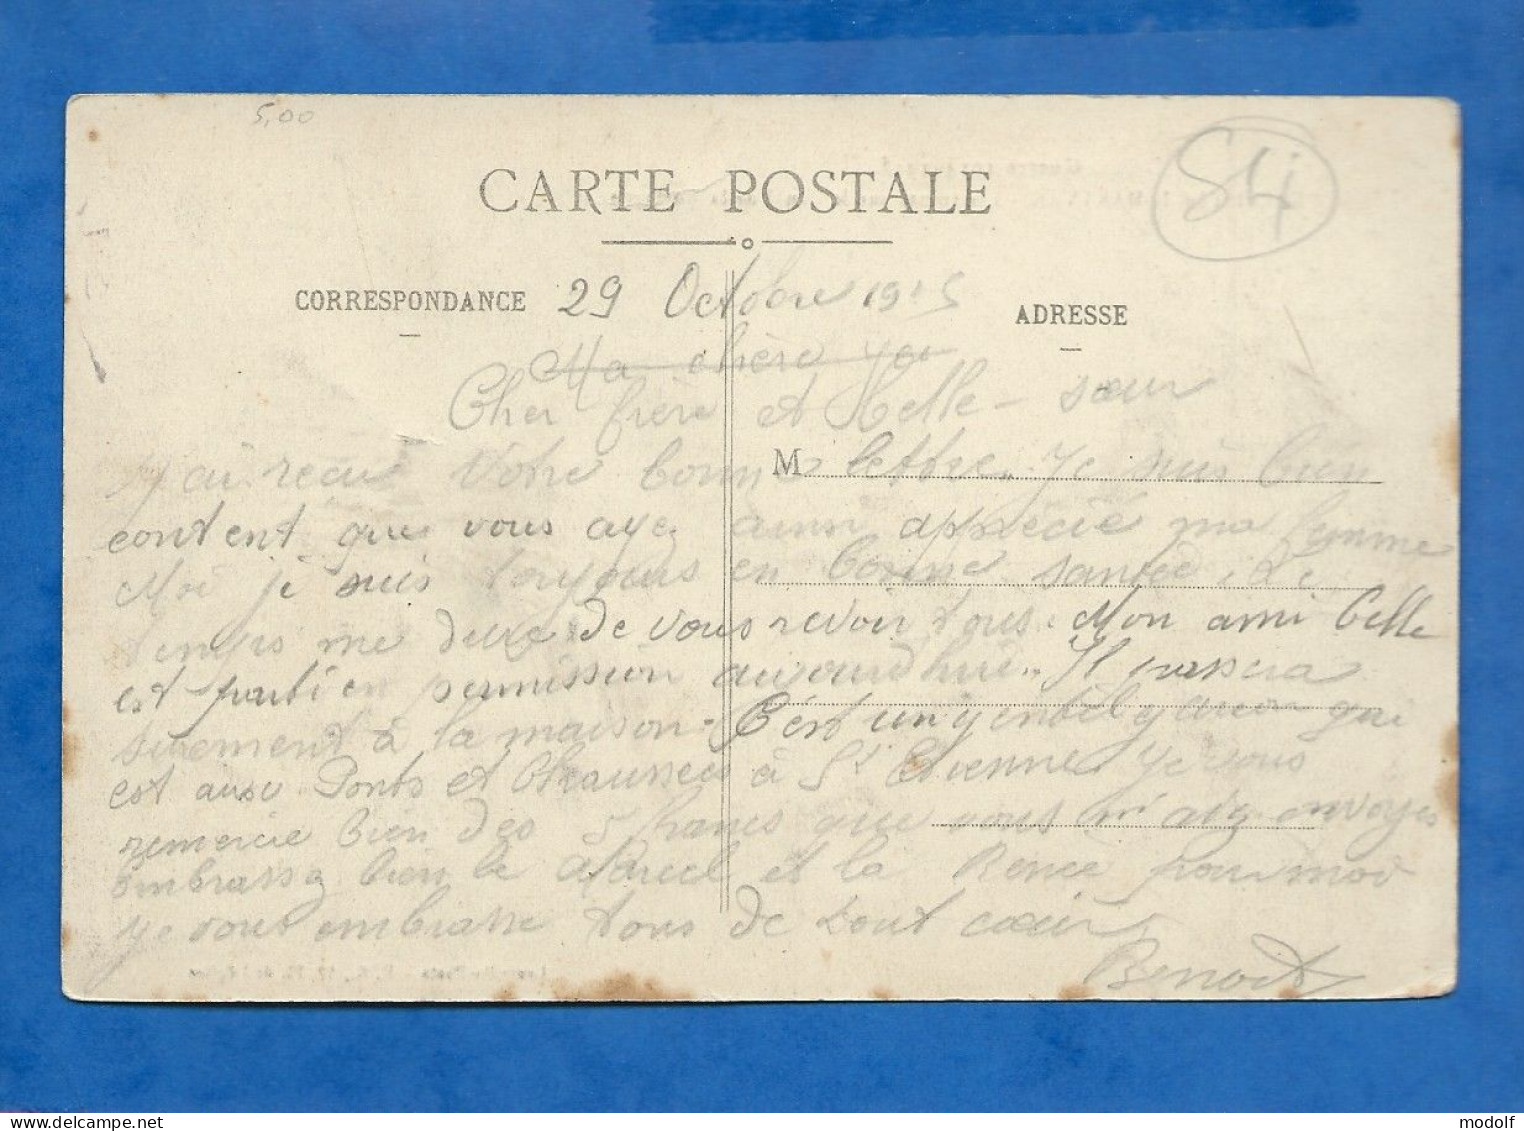 5,00
54
CARTE POSTALE
CORRESPONDANCE
ADRESSE
29 Octobre 1915
Ma chère
Cher frère et belle-sœur
M
J'ai reçu votre bonne lettre. Je suis bien
content que vous ayez ainsi apprécié ma femme
Moi je suis toujours en bonne santée. Le
temps me dure de vous revoir tous. Mon ami Celle
est parti en permission aujourdhui. Il passera
surement à la maison. C'est un gentil garçon qui
est aux Ponts et Chaussées à St Etienne Je vous
remercie bien des 5 francs que vous m'avez envoyes
embrassez bien le Marcel et la Renée pour moi
Je vous embrasse tous de tout cœur
Benoit
www.delcampe.net
modolf